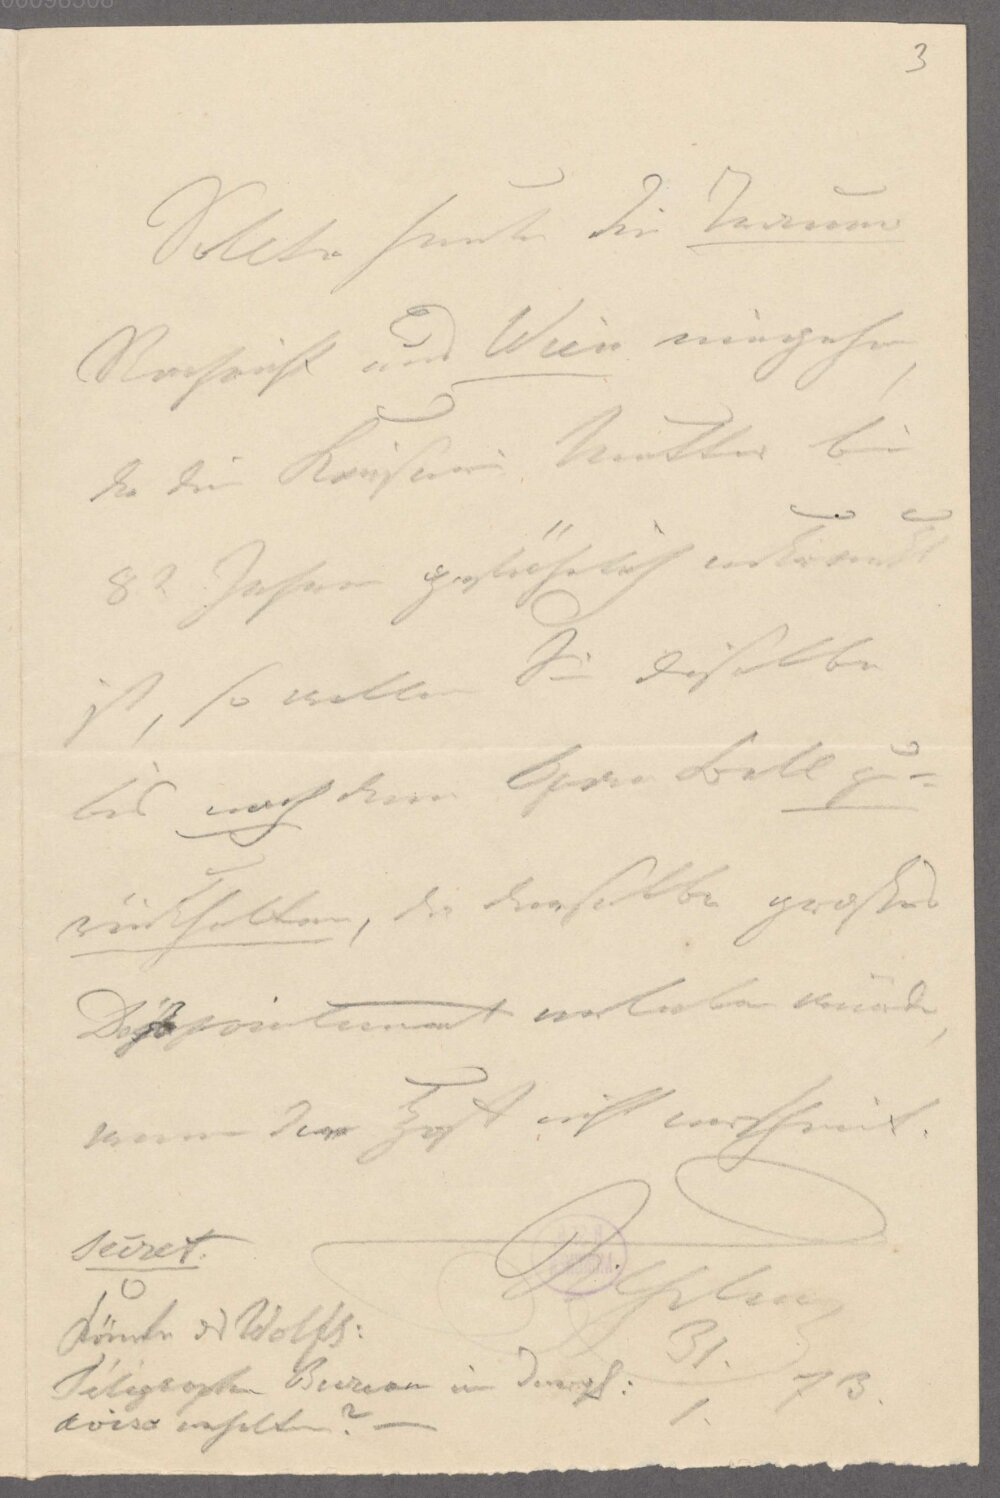 3
Sollte heute die Trauer
Nachricht aus Wien eingehen,
da die Kaiserin Mutter bei
82 Jahren gefährlich erkrankt
ist, so wollen Sie dieselbe
bis nach dem Opern Ball zu=
rückhalten, da derselbe großes
Désapointement erleben würde,
wenn der Hof nicht erscheint.
Wilhelm
31.
1. 73.
secret.
Könnte das Wolffs:
Telegraphen Bureau im Dampf:
aviso erhalten? —